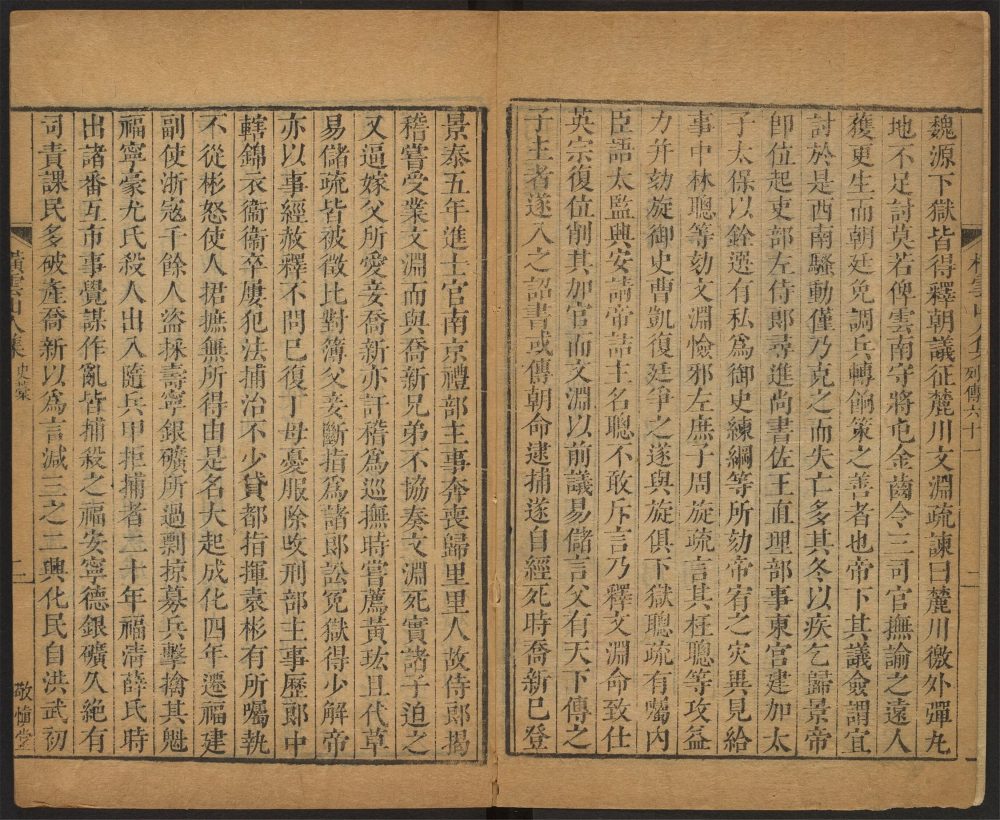 橫雲山人集
列傳六十一
魏源下獄皆得釋朝議征麓川文淵疏諫曰麓川徼外彈丸
地不足討莫若俾雲南守將屯金齒令三司官撫諭之遠人
獲更生而朝廷免調兵轉餉策之善者也帝下其議僉謂宜
討於是西南騷動僅乃克之而失亡多其冬以疾乞歸景帝
卽位起吏部左侍郎尋進尚書佐王直理部事東宮建加太
子太保以銓選有私爲御史練綱等所劾帝宥之災異見給
事中林聰等劾文淵憸邪左庶子周旋疏言其枉聰等攻益
力并劾旋御史曹凱復廷爭之遂與旋俱下獄聰疏有囑內
臣語太監興安請帝詰主名聰不敢斥言乃釋文淵命致仕
英宗復位削其加官而文淵以前議易儲言父有天下傳之
子主者遂入之詔書或傳朝命逮捕遂自經死時喬新已登
景泰五年進士官南京禮部主事奔喪歸里里人故侍郎揭
稽嘗受業文淵而與喬新兄弟不協奏文淵死實諸子迫之
又逼嫁父所愛妾喬新亦訐稽爲巡撫時嘗薦黃玹且代草
易儲疏皆被徵比對簿父妾斷指爲諸郎訟冤獄得少解帝
亦以事經赦釋不問已復丁母憂服除改刑部主事歷郎中
轄錦衣衞衞卒屢犯法捕治不少貸都指揮袁彬有所囑執
不從彬怒使人捃摭無所得由是名大起成化四年遷福建
副使浙寇千餘人盜採壽寧銀礦所過剽掠募兵擊擒其魁
福寧豪尤氏殺人出入隨兵甲拒捕者二十年福淸薛氏時
出諸番互市事覺謀作亂皆捕殺之福安寧德銀礦久絕有
司責課民多破產喬新以爲言減三之二興化民自洪武初
橫雲山人集
史藁
二
敬愼堂